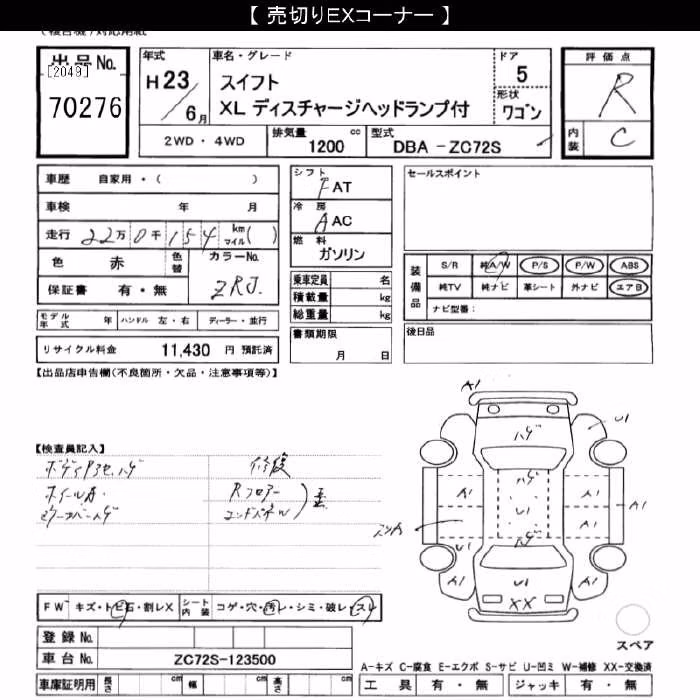 【 売切りEXコーナー 】
出品No.
[2049]
70276
年式
H23/6月
車名・グレード
スイフト
XL ディスチャージヘッドランプ付
ドア
5
形状
ワゴン
評価点
R
内装
C
2WD ・ 4WD
排気量 1200 cc
型式 DBA -ZC72S
車歴 自家用・( )
車検 年 月
走行 22万0千154 km マイル( )
色 赤 色替
カラーNo. ZRJ.
保証書 有・無
モデル年式 年 ハンドル 左・右 ディーラー・並行
リサイクル料金 11,430 円 預託済
シフト
FAT
冷房
AAC
燃料
ガソリン
乗車定員 名
積載量 kg
総重量 kg
書類期限
月 日
セールスポイント
装備品
S/R 純A/W P/S P/W ABS
純TV 純ナビ 革シート 外ナビ エアB
ナビ型番：
後日品
【出品店申告欄(不良箇所・欠品・注意事項等)】
【検査員記入】
修復
Rフロアー
エンドパネル
A1
U1
ハゲ
ハゲ
A1
U1
A1
A1
A1
A1
ハゲ
U1
A1
U1
A1
XX
スペア
FW キズ・トビ石・割レX シート内装 コゲ・穴・汚レ・シミ・破レ・スレ
登録No.
車台No. ZC72S-123500
車庫証明用 長さ cm 幅 cm 高さ cm
A-キズ C-腐食 E-エクボ S-サビ U-凹ミ W-補修 XX-交換済
工具 有・無 ジャッキ 有・無